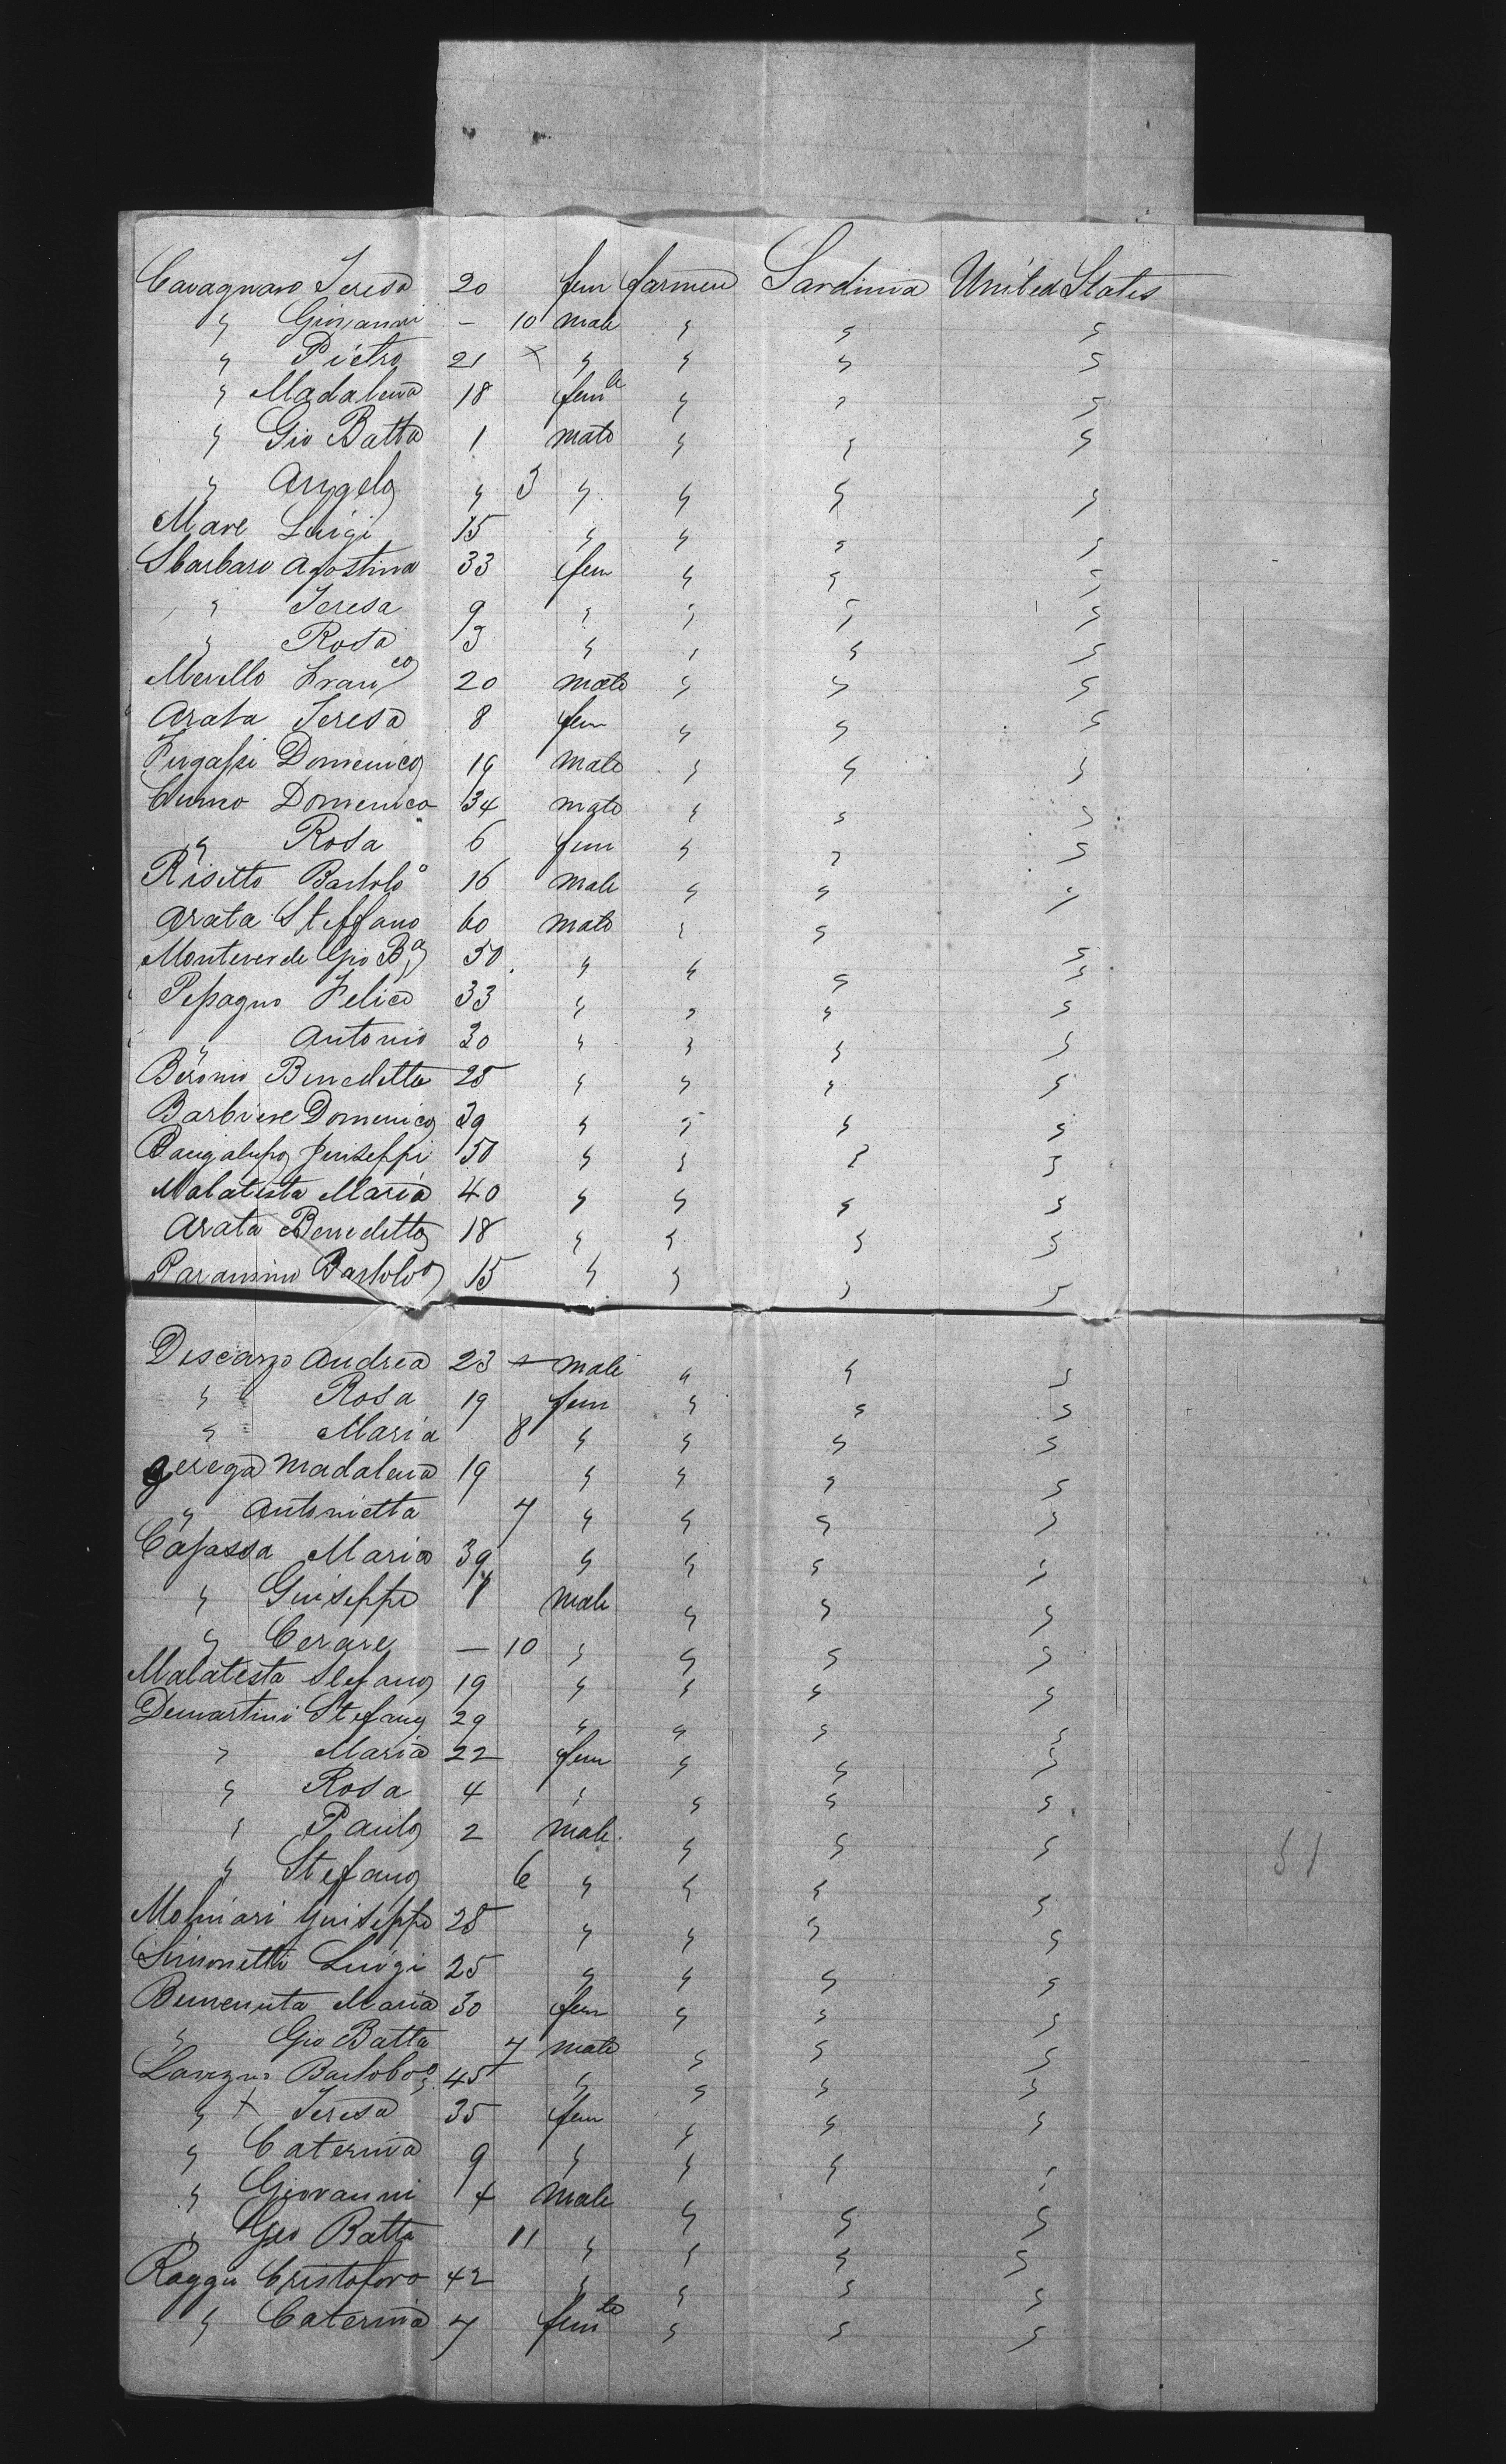 Cavagnaro Teresa 20 fem farmen Sardinia United States
" Giovanni – 10 male " " "
" Pietro 21 x " " " "
" Madalena 18 femle " " "
" Gio Batta 1 male " " "
" Angelo " 3 " " " "
Mare Luigi 15 " " " "
Sbarbaro Agostina 33 fem " " "
" Teresa 9 " " " "
" Rosa 3 " " " "
Merello Franco 20 male " " "
Arata Teresa 8 fem " " "
Fugassi Domenico 19 male " " "
Cumo Domenico 34 male " " "
" Rosa 6 fem " " "
Risetto Bartolo 16 male " " "
Arata Steffano 60 male " " "
Monteverde Gio Ba 50 " " " "
Pessagno Felice 33 " " " "
" Antonio 30 " " " "
Benedetta 25 " " " "
Barbiere Domenico 39 " " " "
Giuseppi 50 " " " "
Malatesta Maria 40 " " " "
Arata Benedetto 18 " " " "
Bartoloo 15 " " " "
Descarzo Andrea 23 x male " " "
" Rosa 19 fem " " "
" Maria 8 " " " "
Gerega Madalena 19 " " " "
" Antonietta 7 " " " "
Capassa Maria 39 " " " "
" Guiseppe 1 male " " "
" Cerare – 10 " " " "
Malatesta Stefano 19 " " " "
Demartini Stefano 29 " " " "
" Maria 22 fem " " "
" Rosa 4 " " " "
" Paulo 2 male " " "
" Stefano 6 " " " "
51
Molinari Guiseppe 28 " " " "
Simonetti Luigi 25 " " " "
Benvenuta Maria 30 fem " " "
" Gio Batta 7 male " " "
Bartoloo 45 " " " "
" x Teresa 35 fem " " "
" Caterina 9 " " " "
" Giovanni 4 male " " "
" Geo Batta 11 " " " "
Raggio Cristoforo 42 " " " "
" Caterina 7 femle " " "